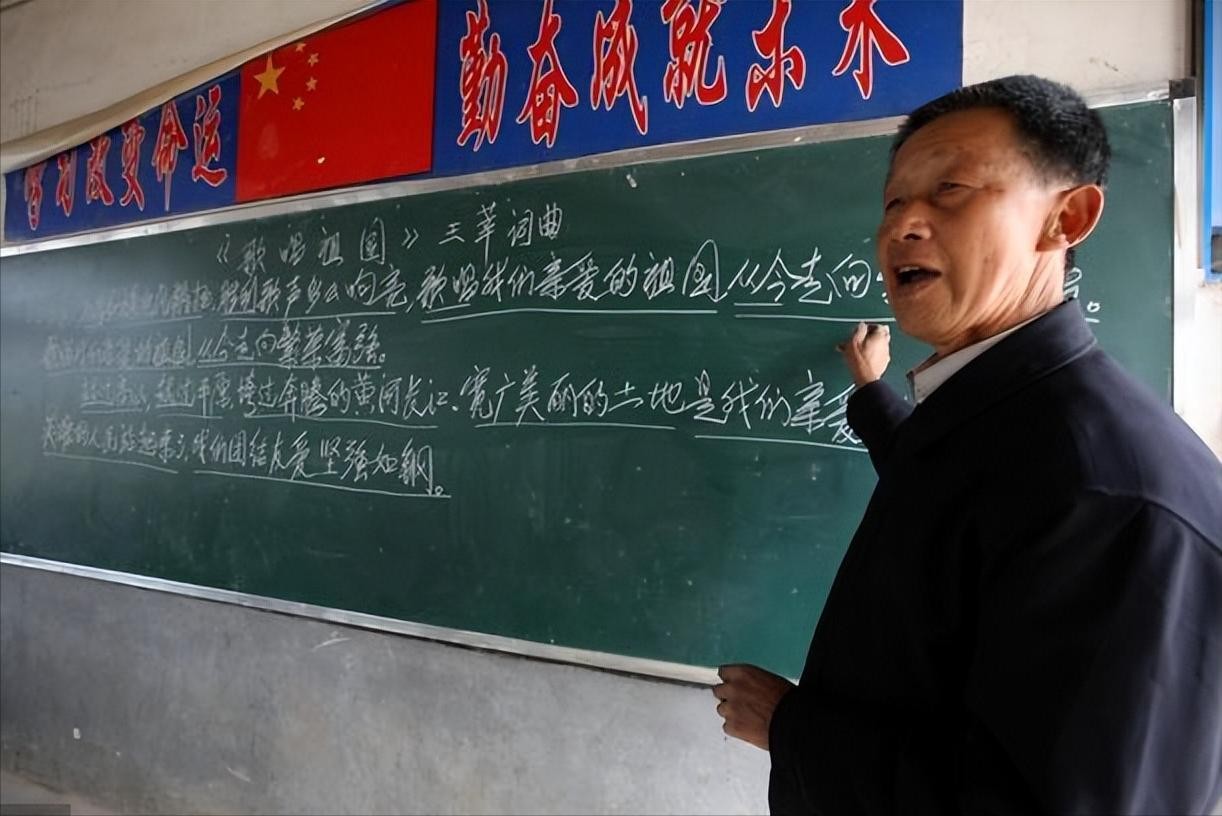 学习改变命运
勤奋成就未来
《歌唱祖国》 王莘词曲
胜利歌声多么响亮,歌唱我们亲爱的祖国 从今走向
的祖国,从今走向繁荣富强。
越过高山,越过平原 跨过奔腾的黄河长江、宽广美丽的土地 是我们亲爱
英雄的人民站起来了,我们团结友爱 坚强如钢。